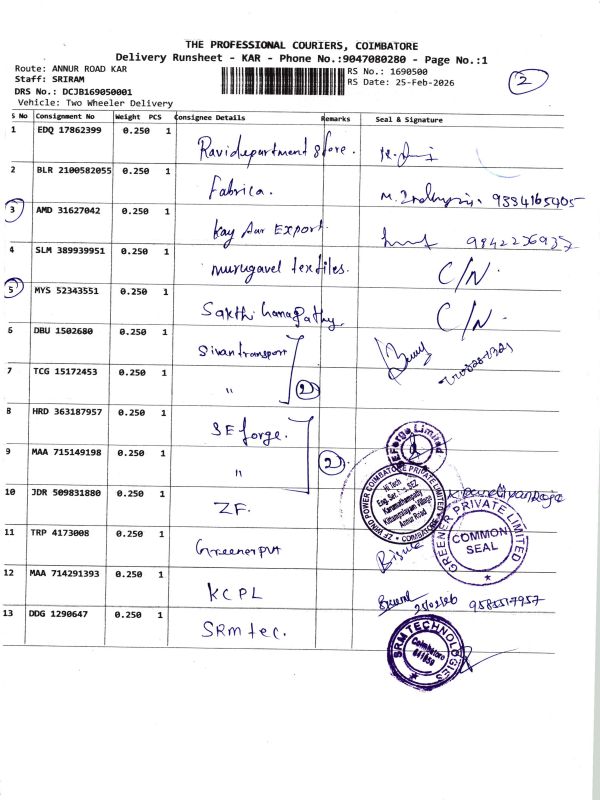 THE PROFESSIONAL COURIERS, COIMBATORE
Delivery Runsheet - KAR - Phone No.:9047080280 - Page No.:1
Route: ANNUR ROAD KAR
RS No.: 1690500
Staff: SRIRAM
RS Date: 25-Feb-2026
DRS No.: DCJB169050001
Vehicle: Two Wheeler Delivery
2
S No Consignment No Weight PCS Consignee Details Remarks Seal & Signature
1 EDQ 17862399 0.250 1 Ravi department Store.
2 BLR 2100582055 0.250 1 Fabrica.
3 AMD 31627042 0.250 1 Kay Aar Export
4 SLM 389939951 0.250 1 murugavel textiles. C/N.
5 MYS 52343551 0.250 1 Sakthi Ganapathy C/N.
6 DBU 1502680 0.250 1 Sivan transport
7 TCG 15172453 0.250 1 " 2
8 HRD 363187957 0.250 1 SE forge.
9 MAA 715149198 0.250 1 " 2
10 JDR 509831880 0.250 1 ZF.
11 TRP 4173008 0.250 1 Greener pvt
12 MAA 714291393 0.250 1 KCPL 25/02/26 9585517957
13 DDG 1290647 0.250 1 SRM tec.
SE Forge Limited
ZF WIND POWER COIMBATORE PRIVATE LIMITED
Hi Tech
Karamathampatty
Kittampalayam Village
Annur Road
GREENER PRIVATE LIMITED
COMMON
SEAL
SRM TECHNOLOGIES
Coimbatore
641659